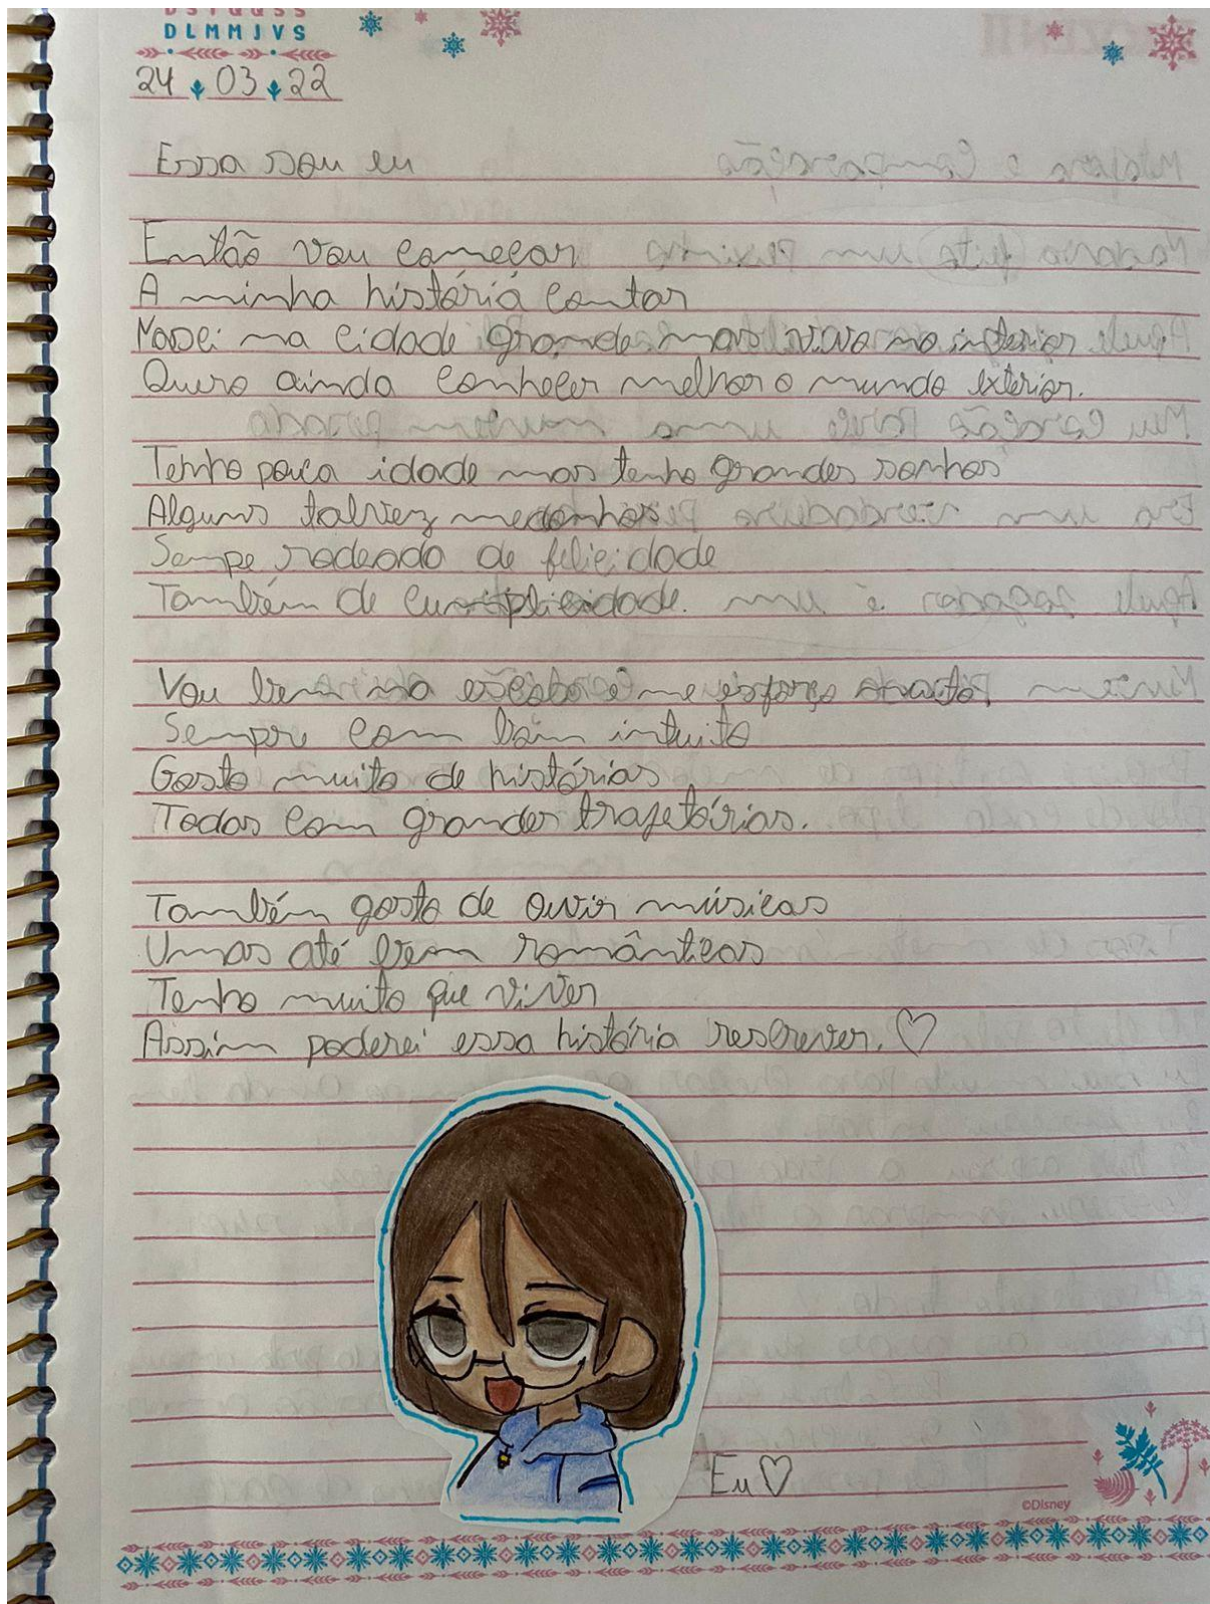 D S T Q Q S S
D L M M J V S
24 03 22
Essa sou eu
Então vou começar
A minha história contar
Nasci na cidade grande mas vivo no interior
Quero ainda conhecer melhor o mundo exterior.
Tenho pouca idade mas tenho grandes sonhos
Alguns talvez medonhos
Sempe rodeada de felicidade
Também de cumplicidade.
Vou bem na escola e me esforço muito,
Sempre com bom intuito
Gosto muito de histórias
Todas com grandes trajetórias.
Também gosto de ouvir músicas
Umas até bem românticas
Tenho muito que viver
Assim poderei essa história rescrever. ♡
Eu ♡
©Disney